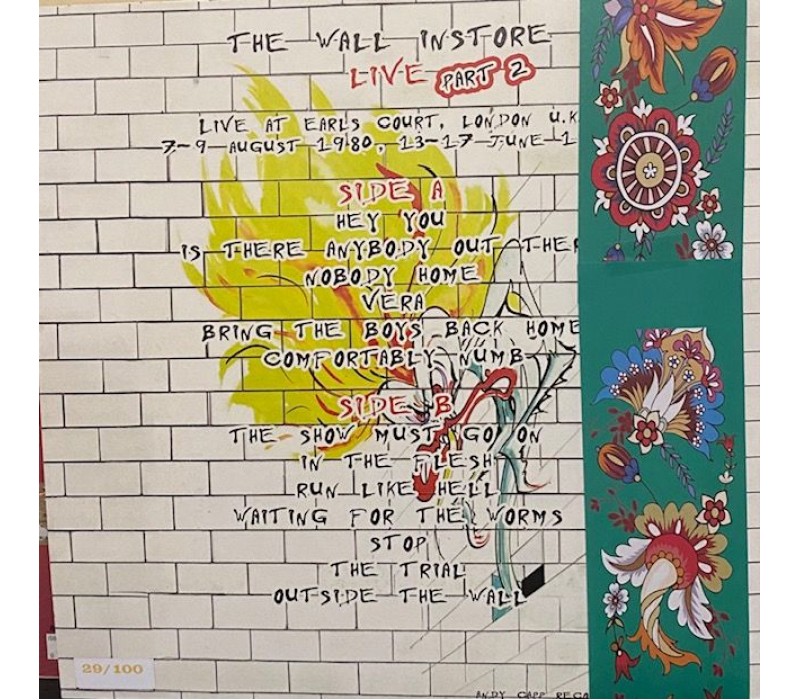 THE WALL INSTORE
LIVE PART 2
LIVE AT EARLS COURT, LONDON U.K
7-9 AUGUST 1980, 13-17 JUNE 1
SIDE A
HEY YOU
IS THERE ANYBODY OUT THE
NOBODY HOME
VERA
BRING THE BOYS BACK HOME
COMFORTABLY NUMB
SIDE B
THE SHOW MUST GO ON
IN THE FLESH
RUN LIKE HELL
WAITING FOR THE WORMS
STOP
THE TRIAL
OUTSIDE THE WALL
29/100
ANDY CAPP RECO